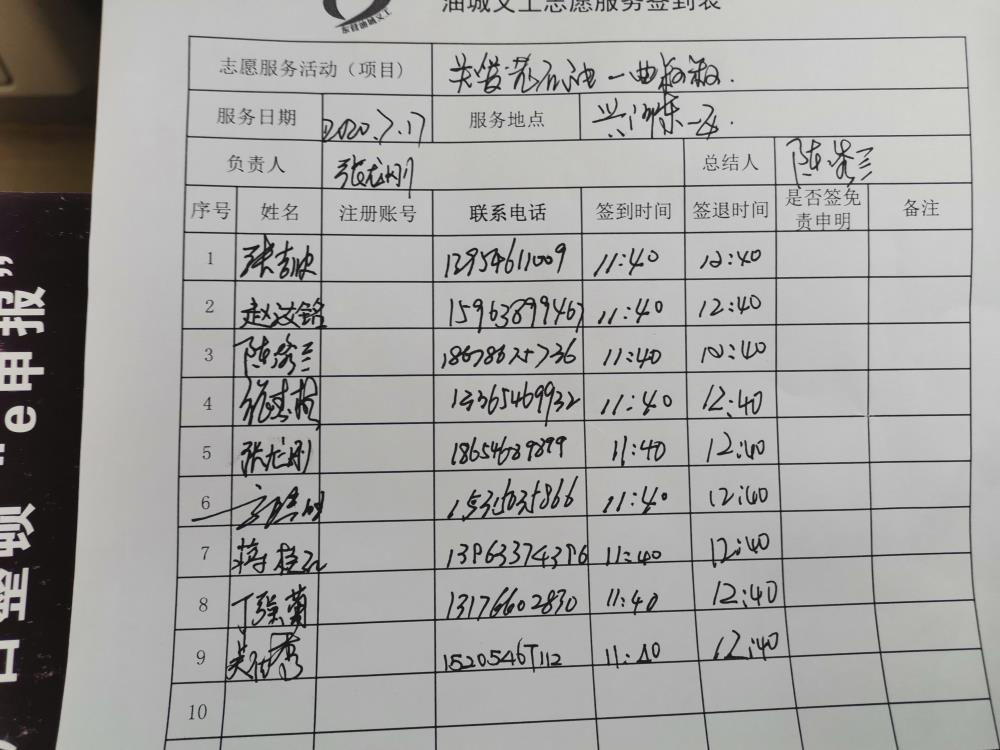 东营油城义工
油城义工志愿服务签到表
志愿服务活动（项目） 关爱老石油一曲
服务日期 2020.7.17 服务地点 兴河东一区.
负责人 张龙刚 总结人 陈 兰
序号 姓名 注册账号 联系电话 签到时间 签退时间 是否签免责申明 备注
1 张 12954611009 11:40 12:40
2 赵汝铭 15963899467 11:40 12:40
3 陈 兰 18678675736 11:40 12:40
4 13365469932 11:40 12:40
5 张龙刚 18654689899 11:40 12:40
6 15315635866 11:40 12:40
7 蒋 13963374396 11:40 12:40
8 丁 菊 13176602830 11:40 12:40
9 吴 秀 15205467112 11:40 12:40
10
日整顿 "e申报"